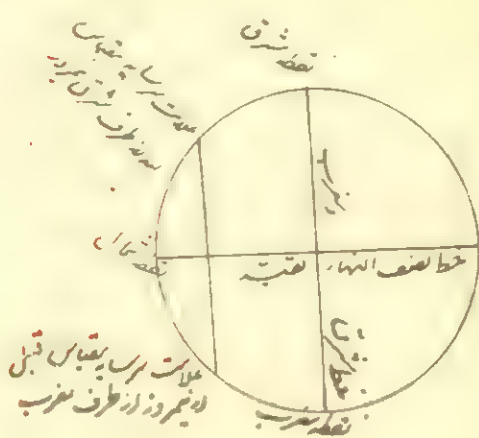 نقطه مشرق
علامت سر سایه مقیاس
بعد از طرف مشرق
نقطه شمال
خط نصف النهار
خط مشرق
علامت سر سایه مقیاس قبل
از نیمروز از طرف مغرب
نقطه مغرب